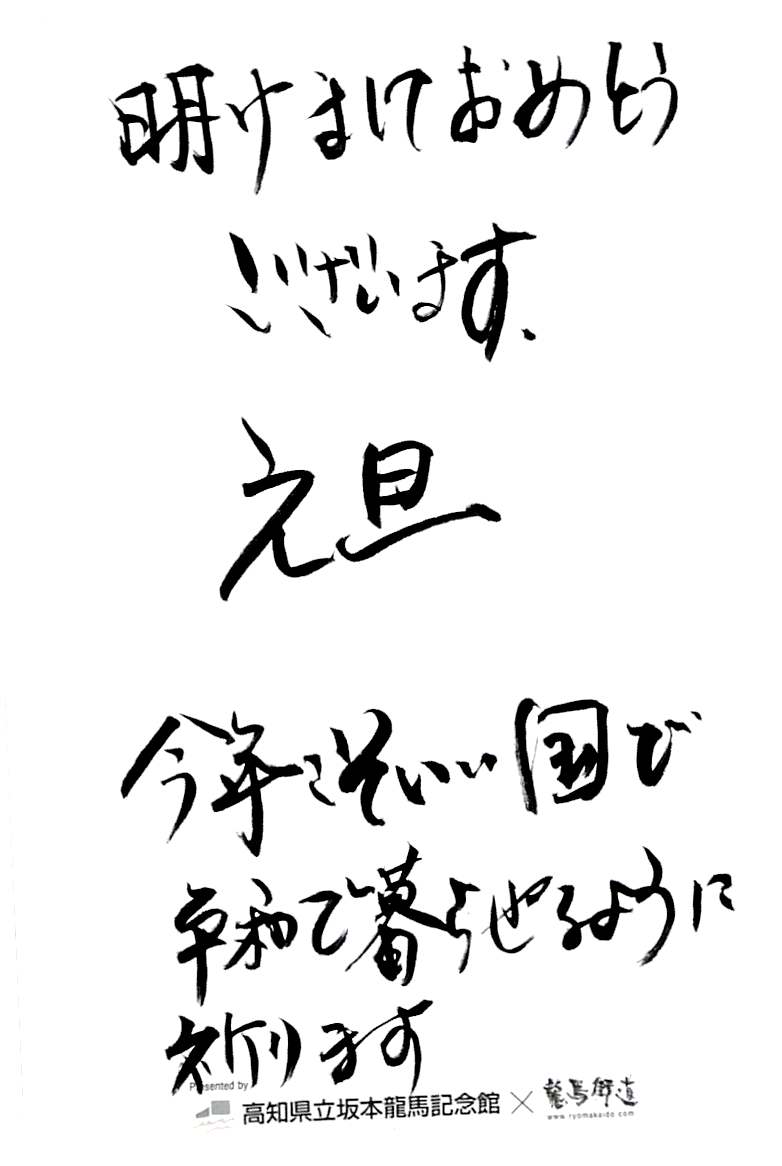 明けましておめでとう
ございます、
元旦
今年こそいい国で
平和で暮らせるように
祈ります
Presented by
高知県立坂本龍馬記念館 × 龍馬街道
www.ryomakaido.com